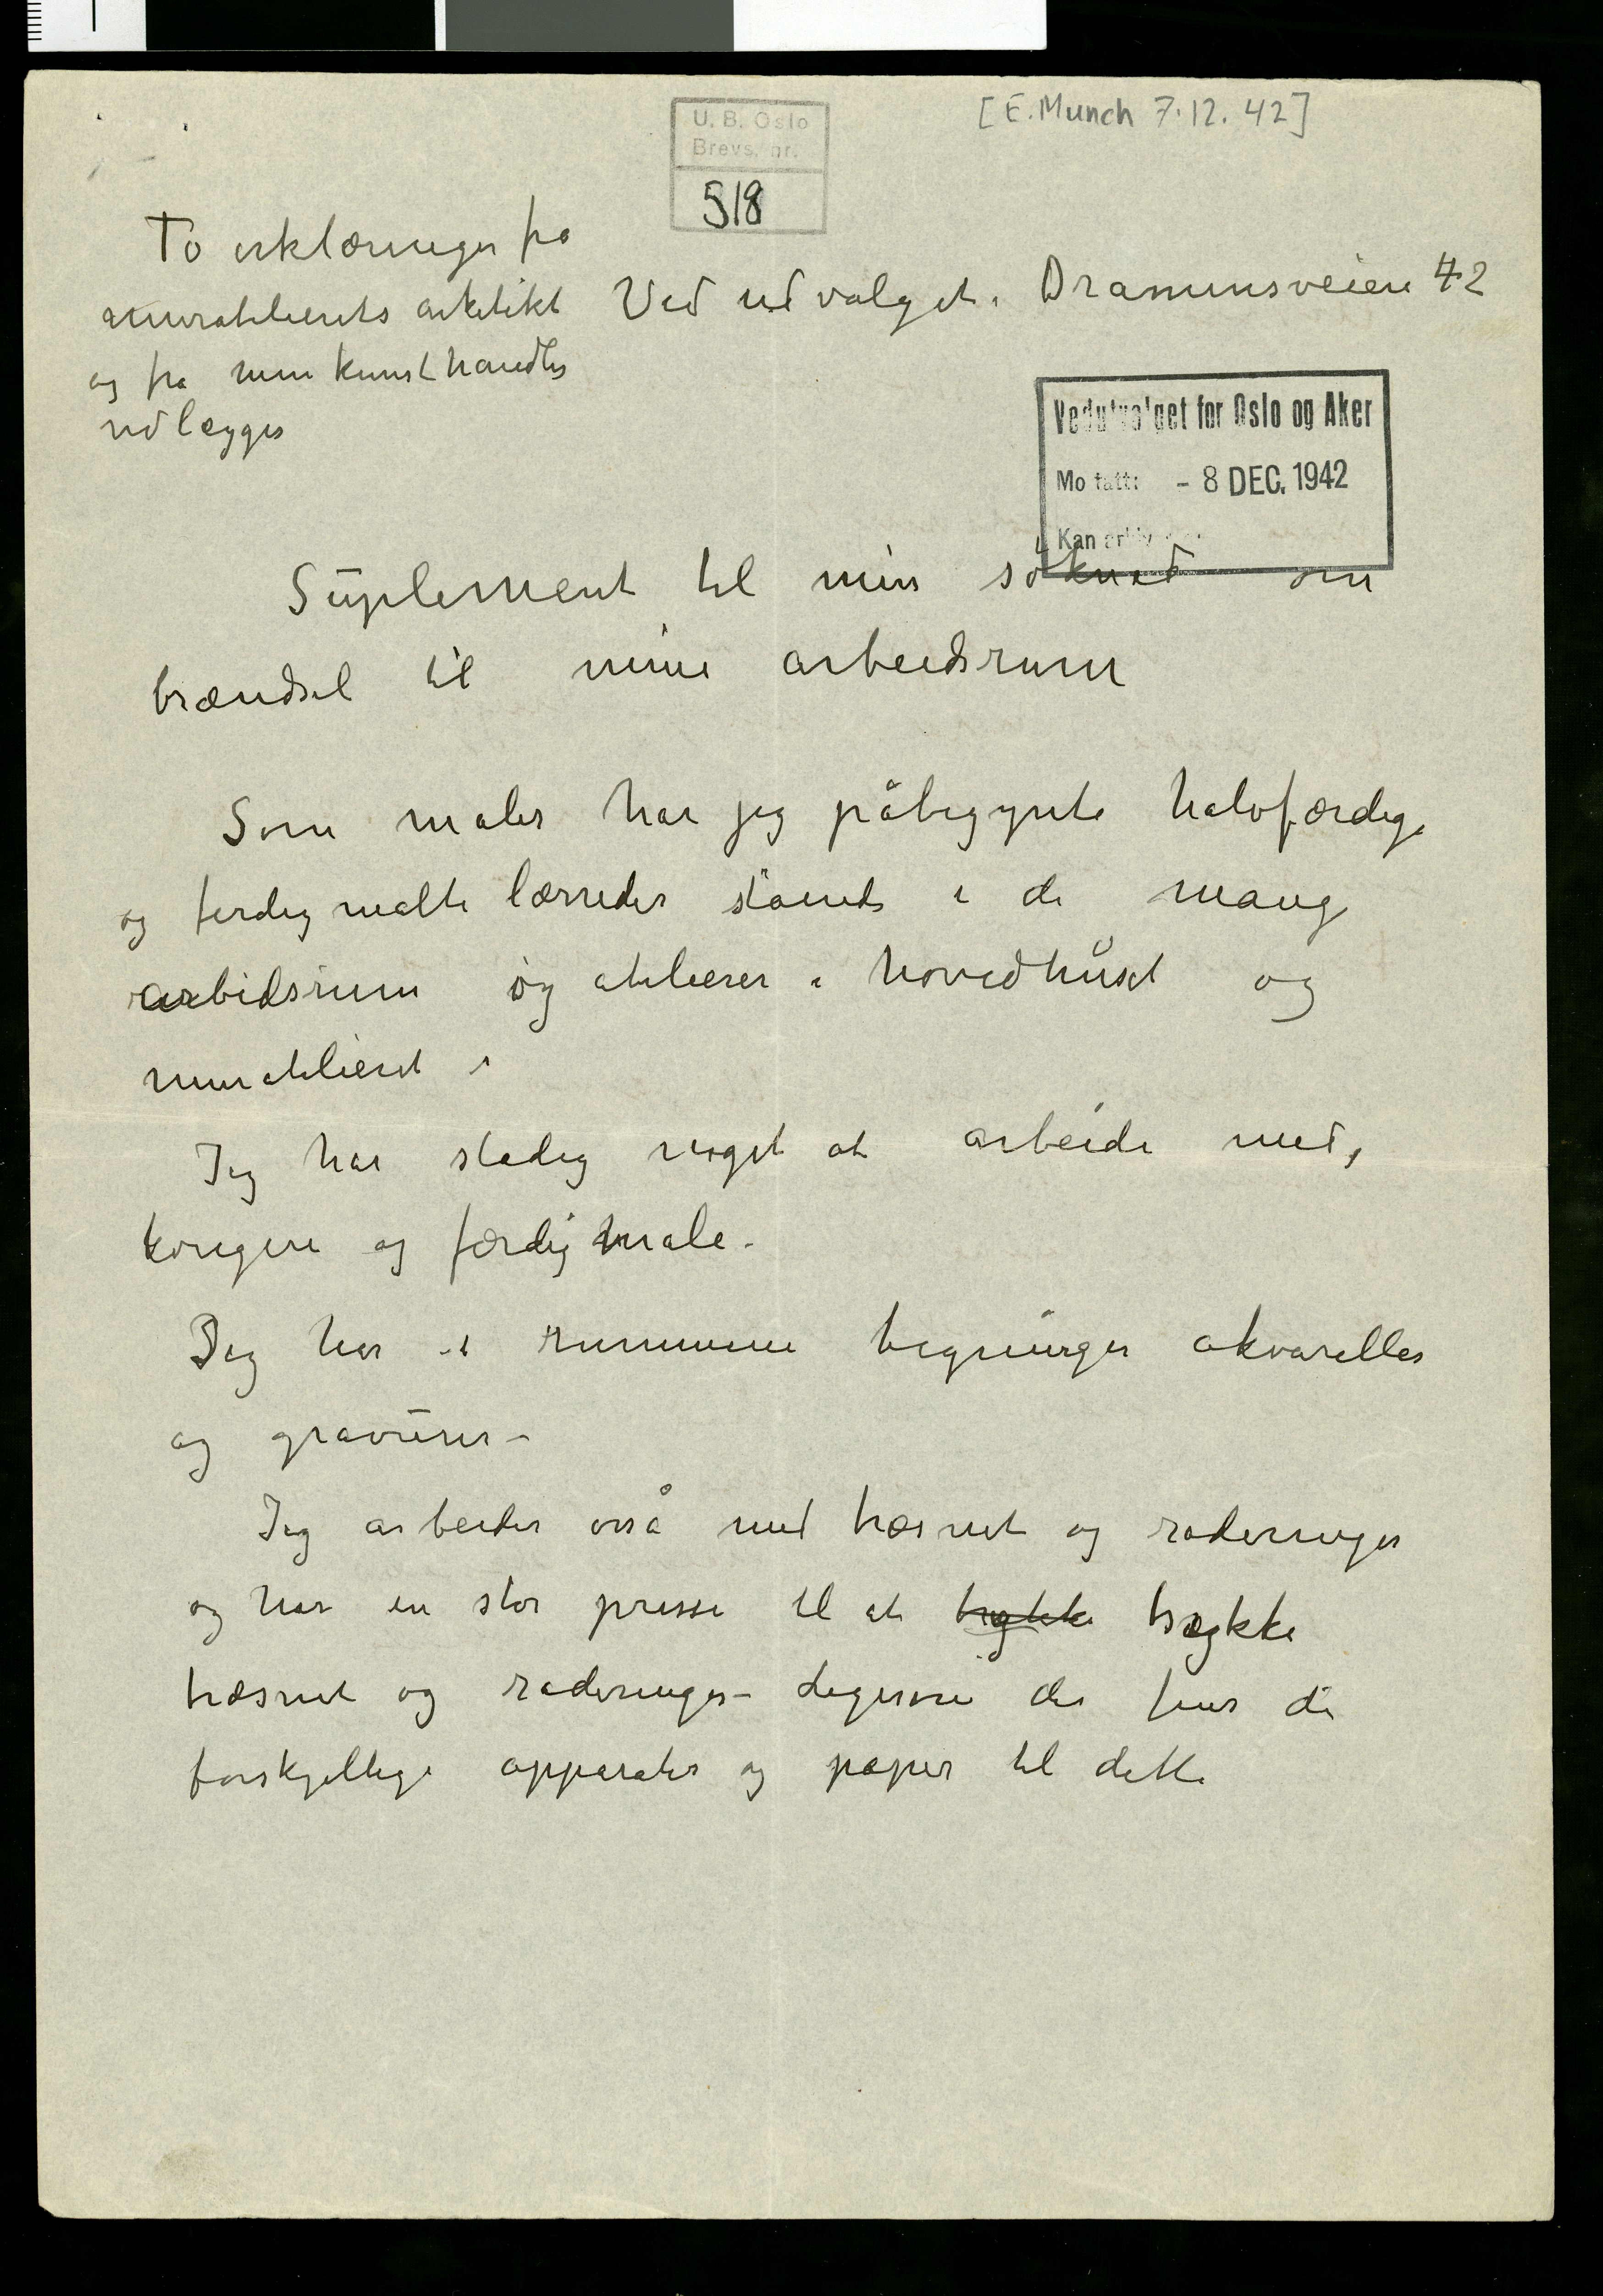 [E. Munch 7.12.42]
U. B. Oslo
Brevs. nr.
518
To erklæringer fra
muratelierets arkitekt
og fra min kunsthandler
udlægges
Ved udvalget. Drammensveien 42
Vedutvalget for Oslo og Aker
Mottatt: - 8 DEC. 1942
Kan
Suplement til min søknad om
brændsel til mine arbeidsrum
Som maler har jeg påbegynte halvfærdige
og ferdigmalte lærreder stående i de mange
arbeidsrum og atelierer i hovedhuset og
muratelieret
Jeg har stadig noget at arbeide med,
korigere og færdigmale –
Jeg har i rummene tegninger akvareller
og gravurer –
Jeg arbeider osså med træsnit og raderinger
og har en stor presse til at trykke trykke
træsnit og raderinger – ligesom der fins de
forskjellige apparater og papir til dette